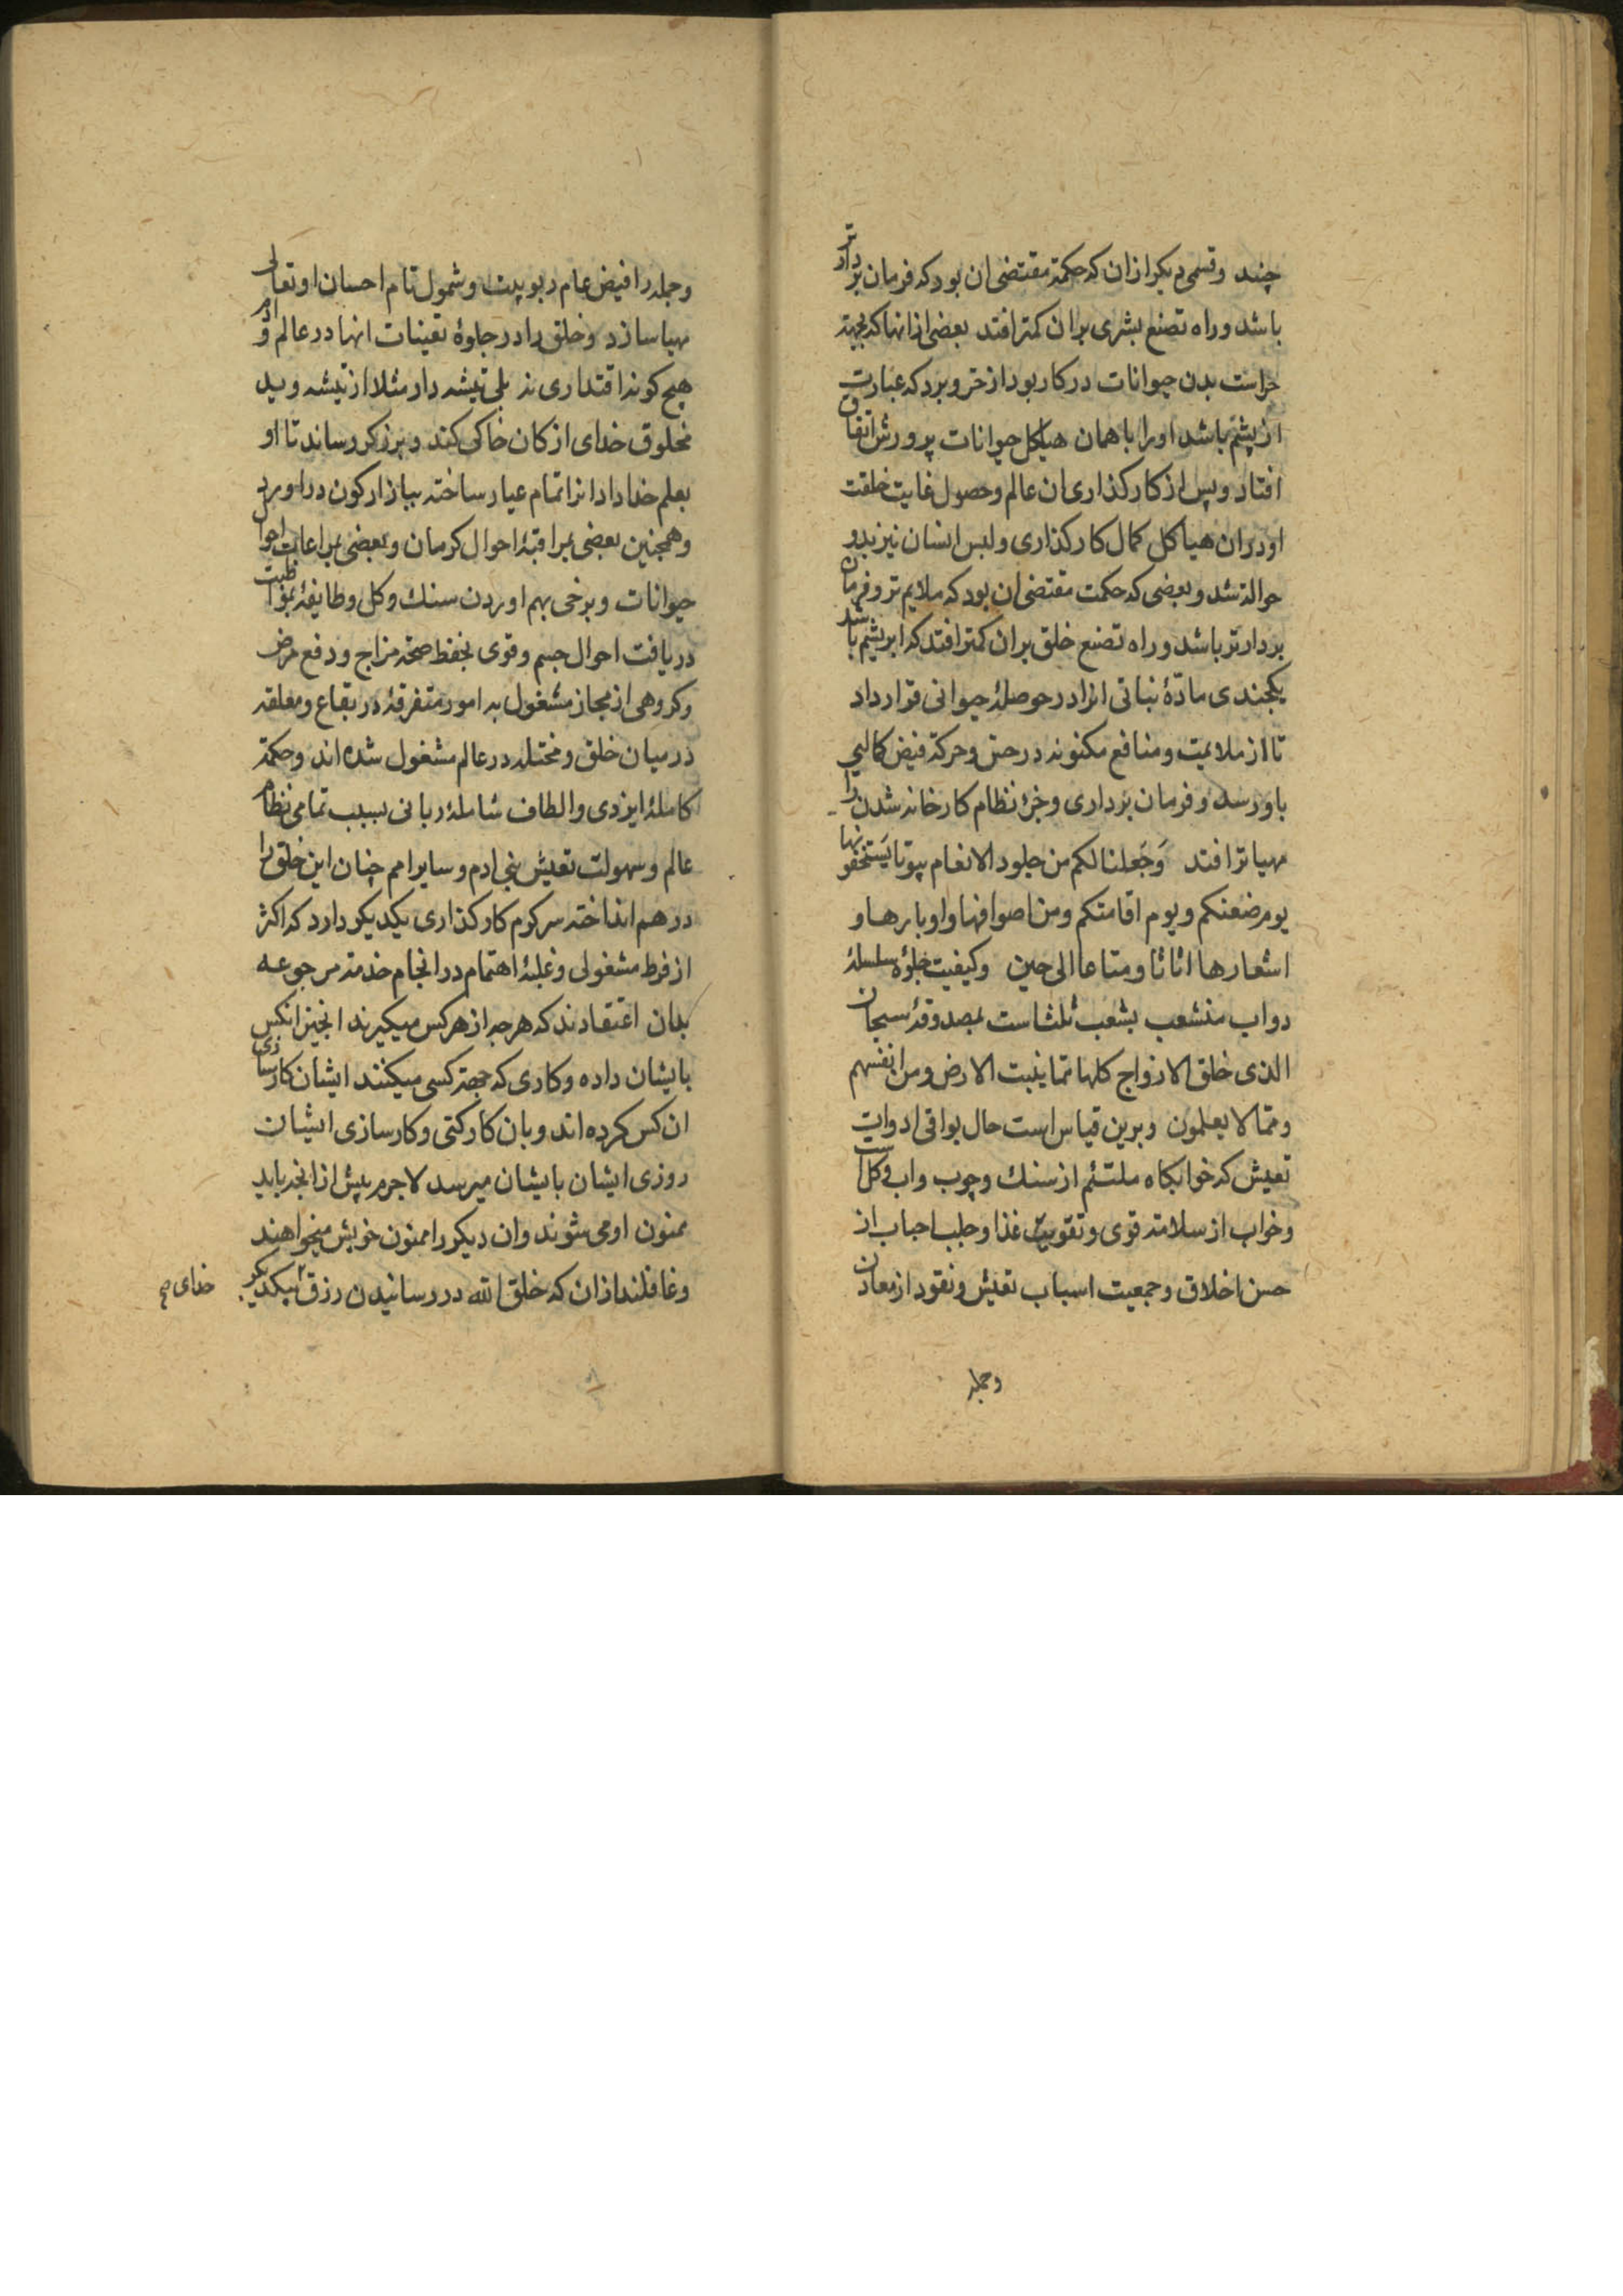 چند وقسمی دیکر ازان که حکمة مقتضی ان بود که فرمان بردارتر
باشد وراه تصنع بشری بران کمتر افتد بعضی ازانها که بجهة
حراست بدن حیوانات در کار بود از حر وبرد که عبارت
از پشم باشد اورا با همان هیاکل حیوانات پرورش اتفاق
افتاد وپس از کارکذاری ان عالم وحصول غایت خلقت
او دران هیاکل کمال کارکذاری ولبس انسان نیز بدو
حوالة شد وبعضی که حکمت مقتضی ان بود که ملایم تر وفرمان
بردارتر باشد وراه تصنع خلق بران کمتر افتد که ابریشم باشد
یکچندی مادّۀ نباتی انرا در حوصلۀ حیوانی قرار داد
تا از ملایمت ومنافع مکنونه در حس وحرکة فیض کمالی
باو رسد وفرمان برداری وجزء نظام کارخانه شدن را
مهیاتر افتد وَجَعلنا لکم من جلود الانعام بیوتا یَستخفونها
یوم ضعنکم ویوم اقامتکم ومن اصوافها واوبارها و
اشعارها اثاثا ومتاعا الی حین وکیفیت جلوۀ سلسلۀ
دواب منشعب بشعب ثلثاست بمصدوقۀ سبحان
الذی خلق الازواج کلها تما ینبت الارض ومن انفسهم
وممّا لا یعلمون وبرین قیاس است حال بواقی ادوات
تعیش که خوابکاه ملتئم از سنک وچوب واب وکل است
وخواب از سلامة قوی وتقویت غذا وجلب احباب از
حسن اخلاق وجمعیت اسباب تعیش ونقود از معادن
وجمله
وجمله را فیض عام ربوبیت وشمول تام احسان او تعالی
مهیا سازد وخلق را در جلوۀ تعینات انها در عالم وامر
هیچ کونه اقتداری نه بلی تیشه دار مثلا از تیشه وید
مخلوق خدای از کان خاکی کند وبزرکر رساند تا او
بعلم خداداد انرا تمام عیار ساخته ببازار کون دراورد
وهمچنین بعضی بمراقبۀ احوال کرمان وبعضی بمراعات احوال
حیوانات وبرخی بهم اوردن سنک وکل وطایفۀ بمواظبت
دریافت احوال جسم وقوی بحفظ صحة مزاج ودفع مرض
وکروهی از مجاز مشغول به امور متفرقۀ در بقاع ومعلقه
در میان خلق ومختله در عالم مشغول شده اند وحکمة
کاملۀ ایزدی والطاف شاملۀ ربانی بسبب تمامی نظام
عالم وسهولت تعیش بنی ادم وسایر امم چنان این خلق را
درهم انداخته سرکرم کارکذاری یکدیکر دارد که اکثر
از فرط مشغولی وغلبۀ اهتمام در انجام خدمة مرجوعه
بدان اعتقادند که هرچه از هر کس میکیرند انچیز انکس
بایشان داده وکاری که جهة کسی میکنند ایشان کارسازی
ان کس کرده اند وبان کارکنی وکارسازی ایشان
روزی ایشان بایشان میرسد لاجرم پیش از انچه باید
ممنون او می شوند وان دیکر را ممنون خویش میخواهند
وغافلند ازان که خلق الله در رسانیدن رزق بیکدیکر
خدای صح